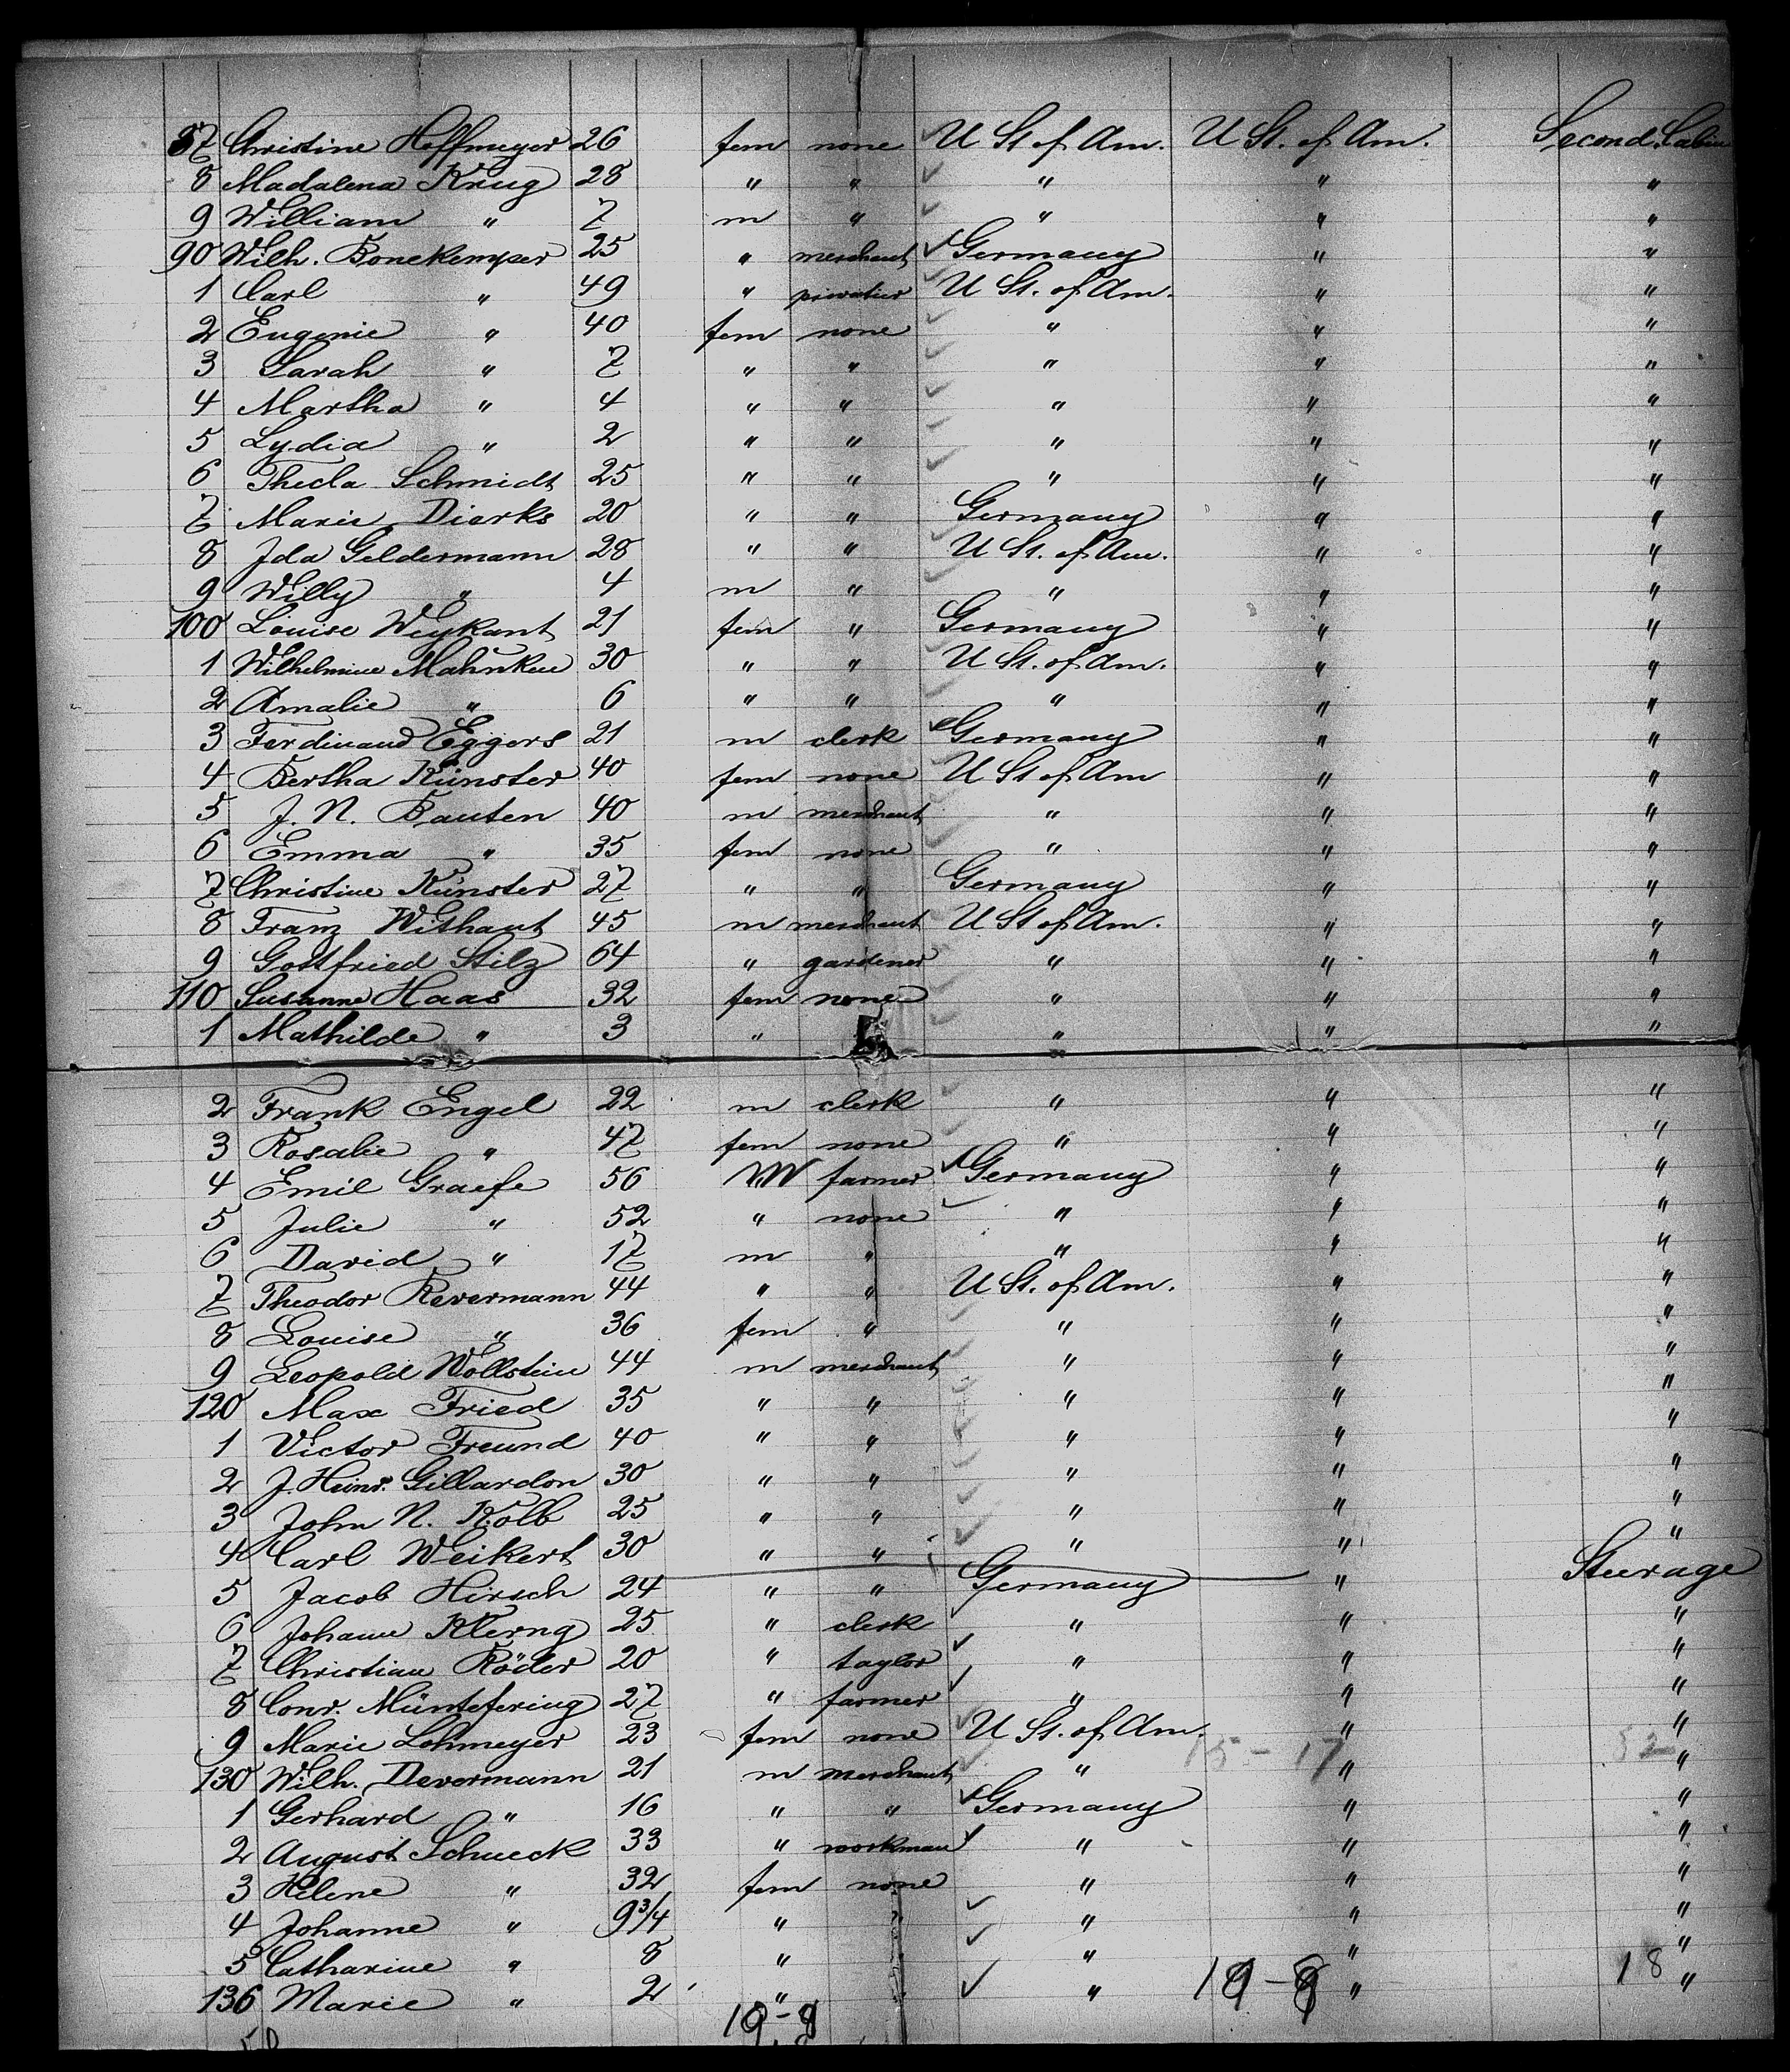 87 Christine Hoffmeyer 26 fem none U St of Am. U St. of Am. Second Cabin
8 Madalena Krug 28 " " " " "
9 William " 7 m " " " "
90 Wilh. Bonekemper 25 " merchant Germany " "
1 Carl " 49 " privatier U St. of Am. " "
2 Eugenie " 40 fem none " " "
3 Sarah " 7 " " " " "
4 Martha " 4 " " " " "
5 Lydia " 2 " " " " "
6 Thecla Schmidt 25 " " " " "
7 Marie Dierks 20 " " Germany " "
8 Ida Geldermann 28 " " U St. of Am. " "
9 Willy " 4 m " " " "
100 Louise Weykant 21 fem " Germany " "
1 Wilhelmine Mahnken 30 " " U St. of Am. " "
2 Amalie " 6 " " " " "
3 Ferdinand Eggers 21 m clerk Germany " "
4 Bertha Künster 40 fem none U St of Am " "
5 J. N. Bauten 40 m merchant " " "
6 Emma " 35 fem none " " "
7 Christine Künster 27 " " Germany " "
8 Franz Withaut 45 m merchant U St of Am. " "
9 Gottfried Stilz 64 " gardener " " "
110 Susanne Haas 32 fem none " " "
1 Mathilde " 3 " " " "
2 Frank Engel 22 m clerk " " "
3 Rosalie " 47 fem none " " "
4 Emil Graefe 56 m farmer Germany " "
5 Julie " 52 " none " " "
6 David " 17 m " " " "
7 Theodor Revermann 44 " " U St. of Am. " "
8 Louise " 36 fem " " " "
9 Leopold Wollstein 44 m merchant " " "
120 Max Fried 35 " " " " "
1 Victor Freund 40 " " " " "
2 J. Heinr. Gillardon 30 " " " " "
3 John N. Kolb 25 " " " " "
4 Carl Weikert 30 " " " " "
5 Jacob Hirsch 24 " " Germany " Steerage
6 Johann Klerng 25 " clerk " " "
7 Christian Röder 20 " taylor " " "
8 Conr. Müntefering 27 " farmer " " "
9 Marie Lohmeyer 23 fem none U St. of Am. " "
15-17 52
130 Wilh. Devermann 21 m merchant " " "
1 Gerhard " 16 " " Germany " "
2 August Schueck 33 " workman " " "
3 Helene " 32 fem none " " "
4 Johanne " 9 3/4 " " " " "
5 Catharine " 8 " " " "
136 Marie " 2 " " 19-9 " 18 "
50 19-9